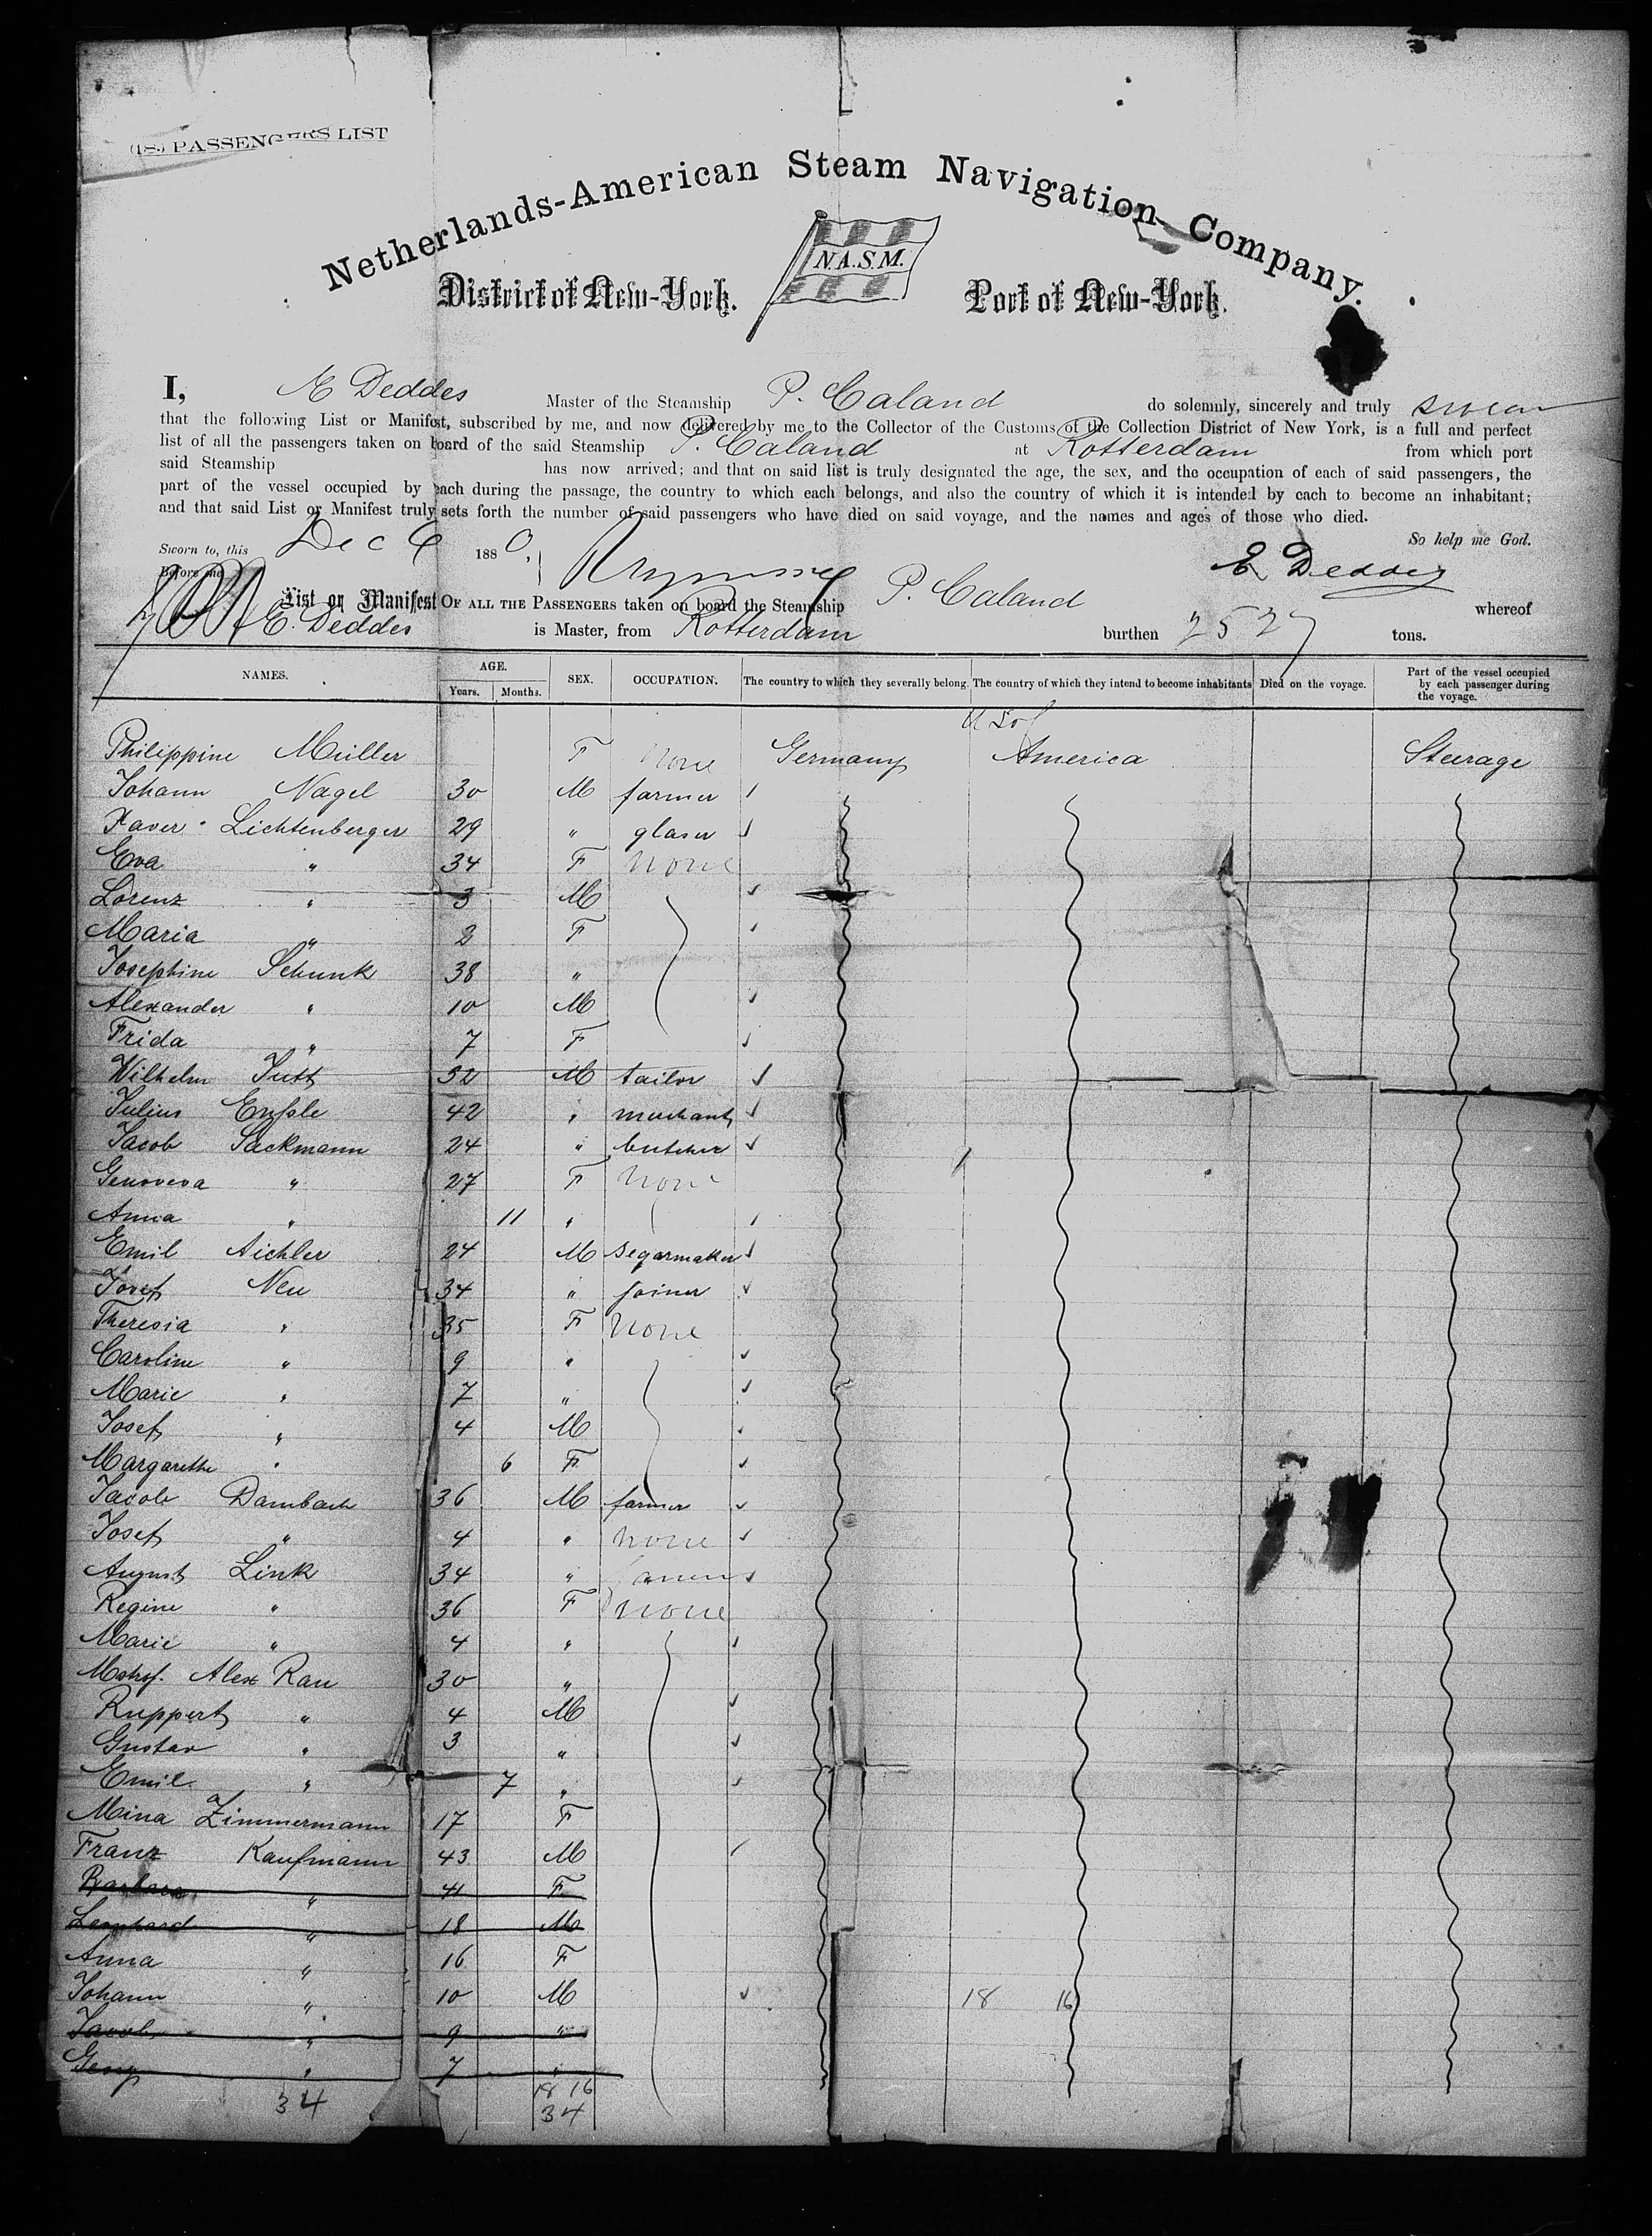 (18.) PASSENGERS LIST
Netherlands-American Steam Navigation Company.
N.A.S.M.
District of New-York. Port of New-York.
I, E Deddes Master of the Steamship P. Caland do solemnly, sincerely and truly swear
that the following List or Manifest, subscribed by me, and now delivered by me to the Collector of the Customs of the Collection District of New York, is a full and perfect
list of all the passengers taken on board of the said Steamship P. Caland at Rotterdam from which port
said Steamship has now arrived; and that on said list is truly designated the age, the sex, and the occupation of each of said passengers, the
part of the vessel occupied by each during the passage, the country to which each belongs, and also the country of which it is intended by each to become an inhabitant;
and that said List or Manifest truly sets forth the number of said passengers who have died on said voyage, and the names and ages of those who died.
So help me God.
Sworn to, this Dec 6 1880,
Before me E Deddes
List or Manifest OF ALL THE PASSENGERS taken on board the Steamship P. Caland whereof
E. Deddes is Master, from Rotterdam burthen 2527 tons.
NAMES. AGE. Years. Months. SEX. OCCUPATION. The country to which they severally belong. The country of which they intend to become inhabitants Died on the voyage. Part of the vessel occupied by each passenger during the voyage.
U S of
Philippine Müller F None Germany America Steerage
Johann Nagel 30 M farmer
Xaver Lichtenberger 29 " glaser
Eva " 34 F None
Lorenz " 3 M
Maria " 2 F
Josephine Schunk 38 "
Alexander " 10 M
Frida " 7 F
Wilhelm Jutt 32 M tailor
Julius Enßle 42 " merchant
Jacob Sackmann 24 " butcher
Genoveva " 27 F None
Anna " 11 "
Emil Aichler 24 M segarmaker
Josef Neu 34 " joiner
Theresia " 35 F None
Caroline " 9 "
Marie " 7 "
Josef " 4 M
Margarethe " 6 F
Jacob Dambach 36 M farmer
Josef " 4 " none
August Link 34 " farmer
Regine " 36 F none
Marie " 4 "
Alex Rau 30 "
Ruppert " 4 M
Gustav " 3 "
Emil " 7 "
Mina Zimmermann 17 F
Franz Kaufmann 43 M
Barbara " 41 F
Leonhard " 18 M
Anna " 16 F
Johann " 10 M 18 16
Jacob " 9 "
Georg " 7 "
34 18 16
34